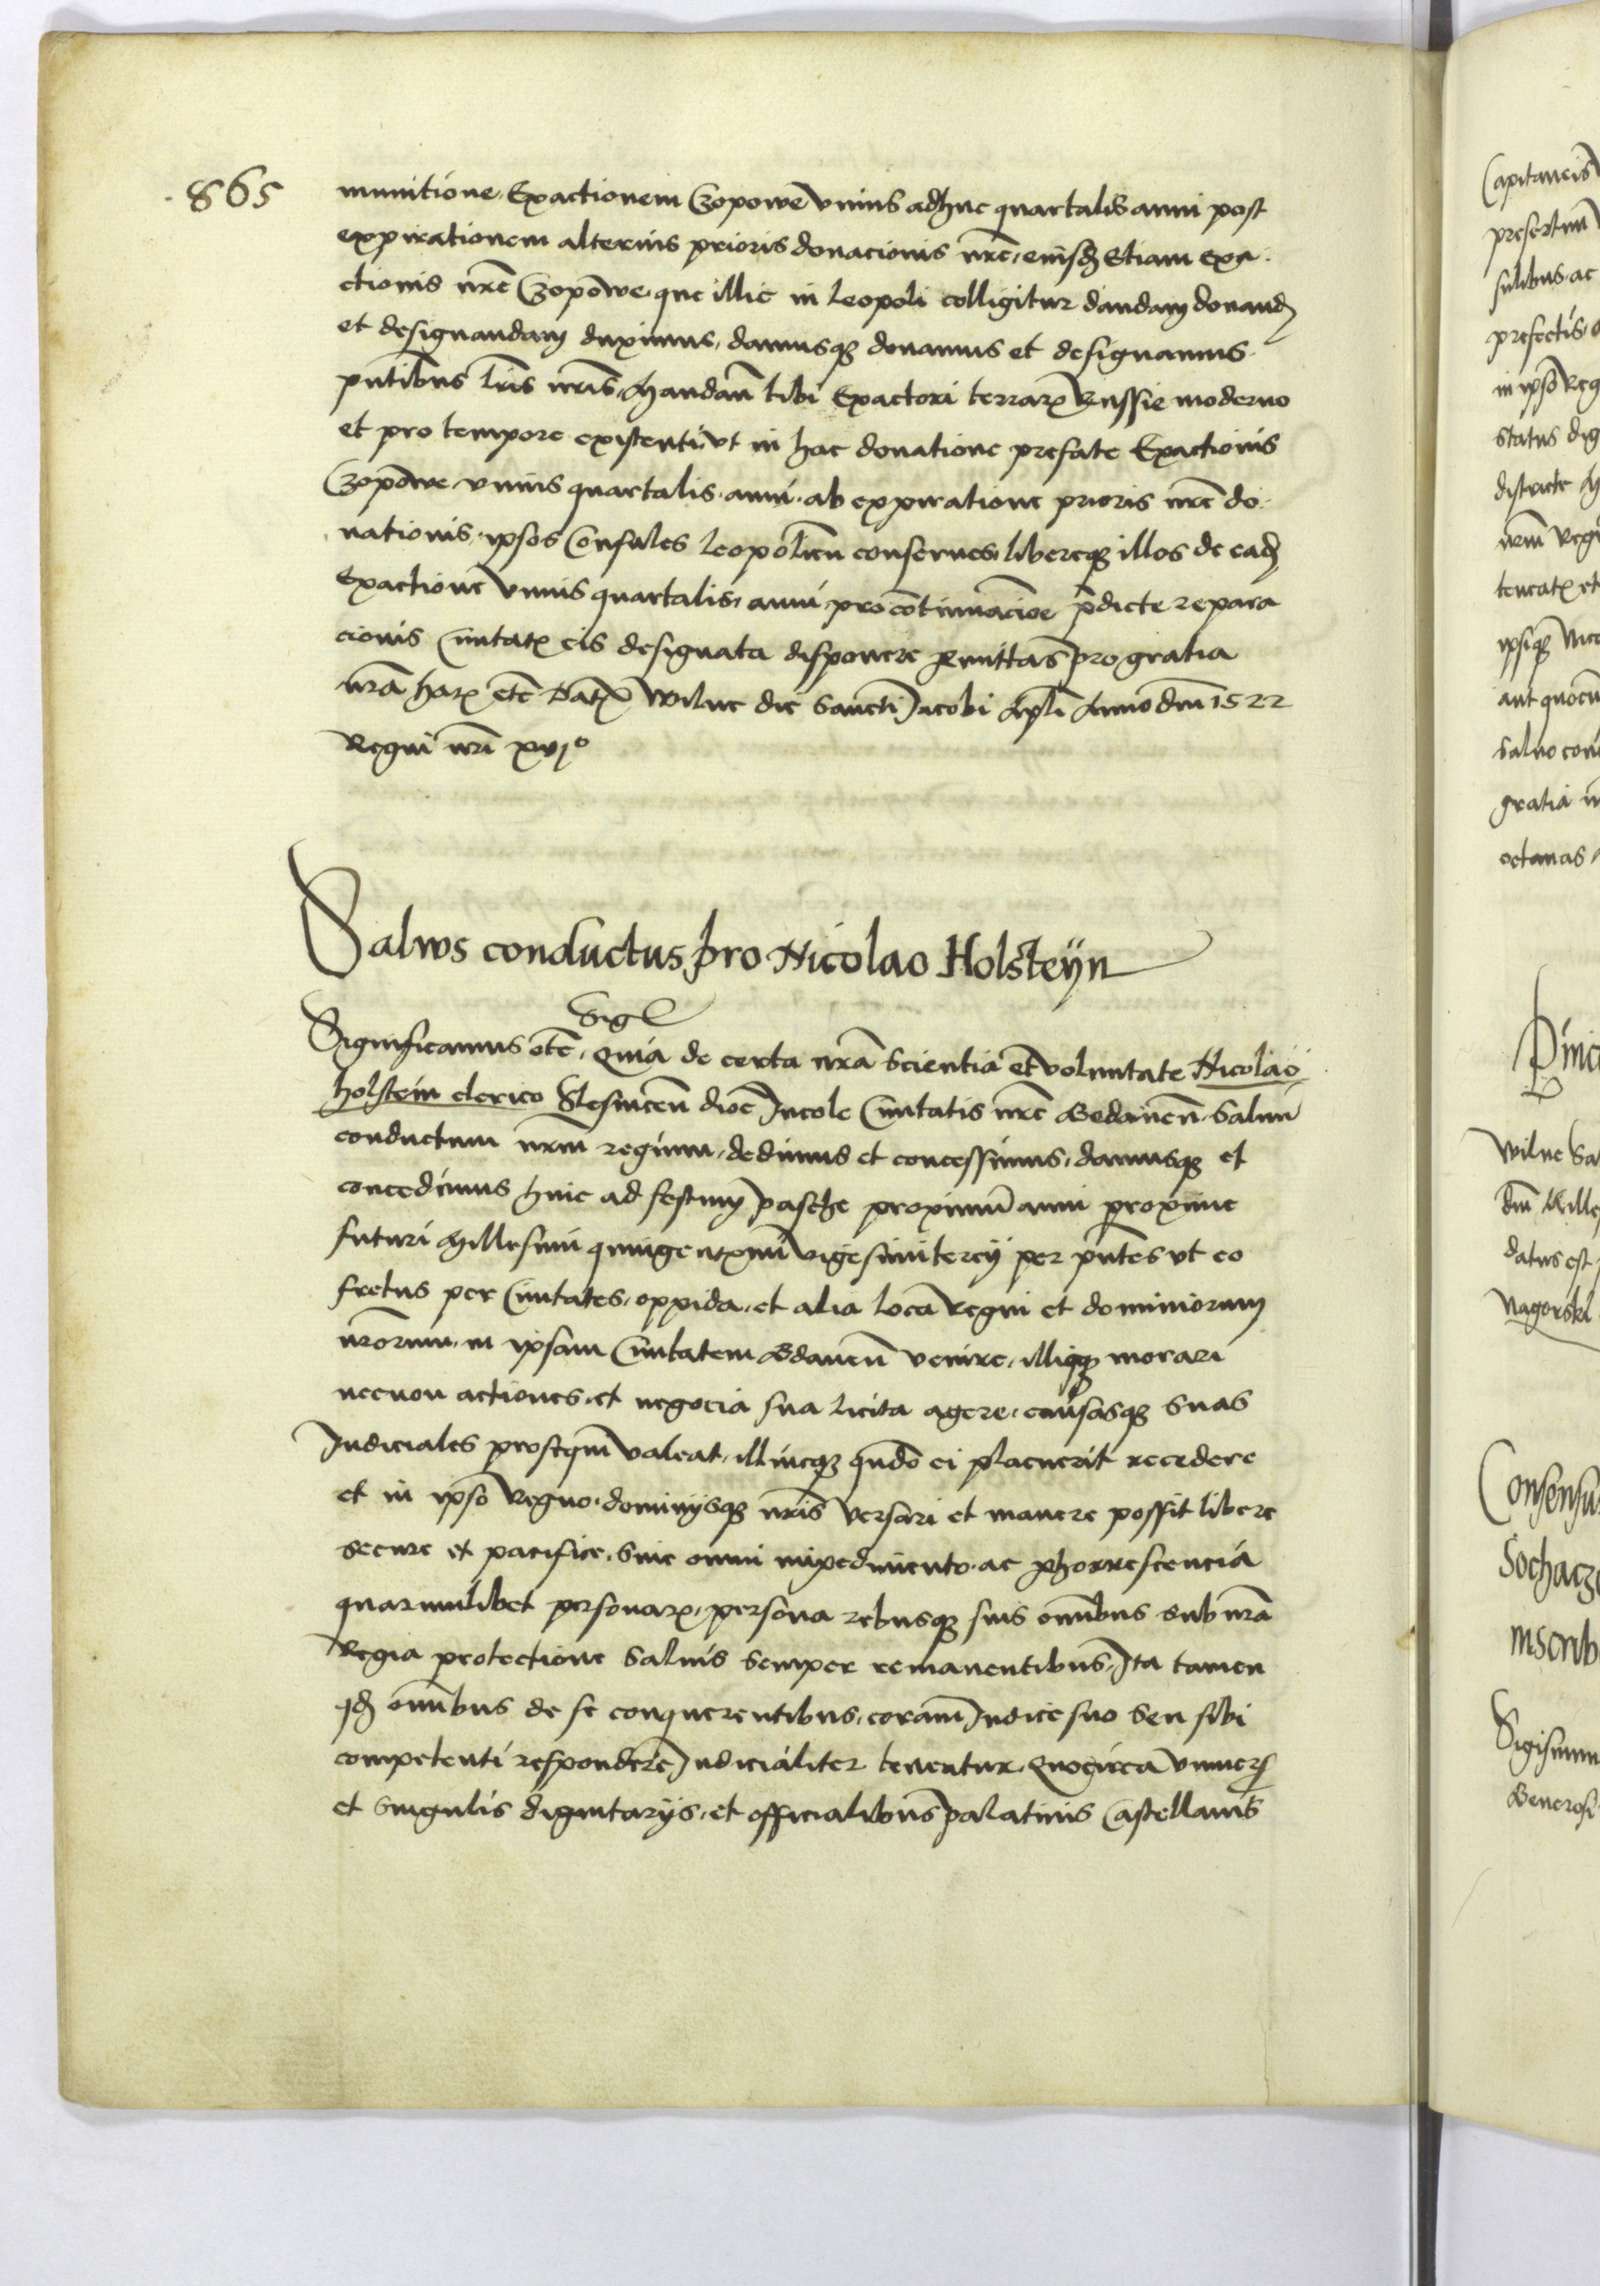 865
munitione Exactionem Czopowe vnius adhuc quartalis anni post
expirationem alterius prioris donacionis nr̃e, eiusdꝫ Etiam Exa-
ctionis nr̃e Czopowe, que illic in Leopoli colligitur dandam donandꝫ
et designandam duximus, damusqꝫ donamus et designamus
pñtibus lr̃is nr̃is, Mandan̄ tibi Exactori terrarꝝ Russie moderno
et pro tempore existenti, vt in hac donatione prefate Exactionis
Czopowe vnius quartalis anni, ab expiratione prioris nr̃e do-
nationis, ipsos Consules Leopolien̄ conserues, libereqꝫ illos de eadꝫ
Exactione vnius quartalis, anni, pro continuacioe p̄dicte repara
cionis Ciuitatꝭ eis designata disponere ꝑmittas pro gratia
nr̃a harꝝ etc̄ Datꝭ Wilne die Sancti Jacobi Apl̄i Anno dn̄i 1522
Regni nr̃i xvjº
Salws conductus pro Nicolao Holsteÿn
Sigꝭ
Significamus etc̄, Quia de certa nr̃a Scientia et voluntate Nicolao
Holstein clerico Slesuicen̄ dioc̄ Incole Ciuitatis nr̃e Gedanen̄ Saluū
conductum nr̃m regium, dedimus et concessimus, damusqꝫ et
concedimus hinc ad festum pasche proximū anni proxime
futuri Millesimi quingentꝭmi vigesimitercij per pñtes vt eo
fretus per Ciuitates, oppida, et alia loca Regni et dominiorum
nr̃orum, in ipsam Ciuitatem Gdanen̄ venire, illiqꝫ morari
necnon actiones, et negocia sua licita agere, causasqꝫ suas
Judiciales proseqm̄ valeat, illincqꝫ qn̄do ei placuerit recedere
et in ipso Regno, dominijsqꝫ nr̃is versari et manere possit libere
secure et pacifice, Sine omni impedimento, ac ꝑhorrescencia
quarumlibet personarꝝ, persona rebusqꝫ suis oīnibus sub nr̃a
Regia protectione Saluis semper remanentibus, Ita tamen
qđ oīnibus de se conquerentibus, coram Judice suo Seu sibi
competenti respondere Judicialiter teneatur, Quocirca vniuerꝭ
et Singulis dignitarijs, et officialibus palatinis Castellanis
Capitaneis
presertim
sulibus, ac
prefectis,
in ipso Reg
status dig
districte
nr̃m Regi
teneatꝭ et
ipsiqꝫ Nico
aut quocū
Saluo con
gratia n
octauas
Wilne Sa
dn̄i Mille
datus est
Nagorski
Consensu
Sochacz
inscrib
Sigismun
Generosi